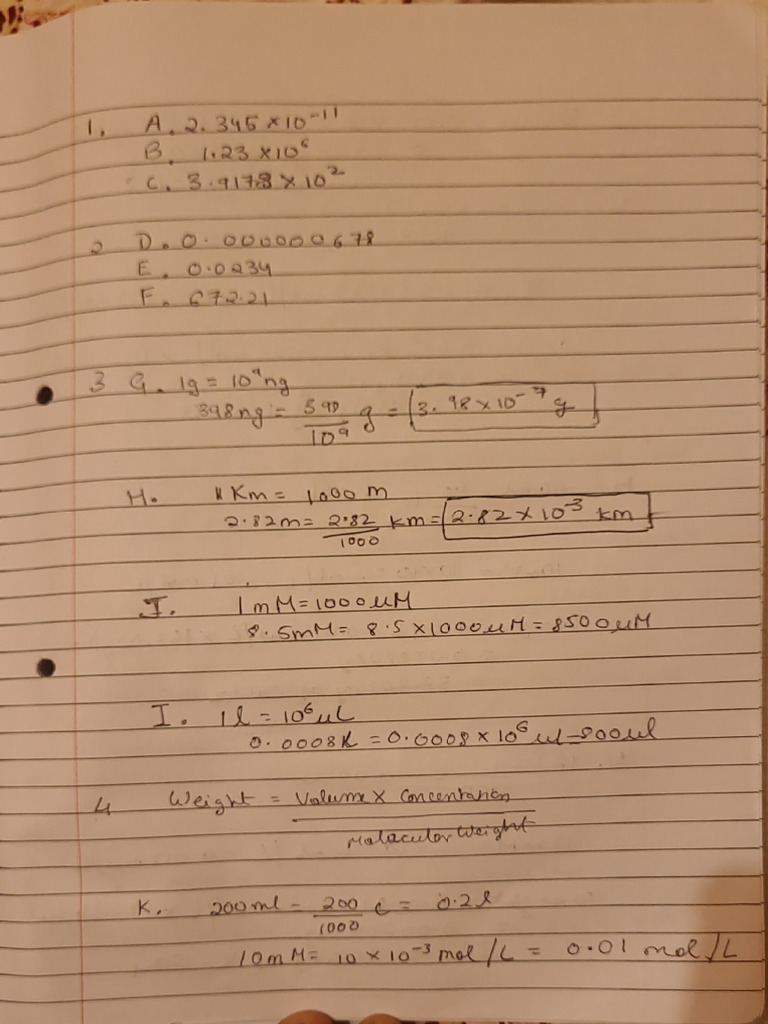 1. A. 2.345 × 10⁻¹¹
B. 1.23 × 10⁶
C. 3.9178 × 10²
2 D. 0.000000678
E. 0.0234
F. 672.21
3 G. 1g = 10⁹ng
398ng = 398/10⁹ g = 3.98 × 10⁻⁷ g
H. 1 Km = 1000 m
2.82m = 2.82/1000 km = 2.82 × 10⁻³ km
J. 1mM = 1000 uM
8.5mM = 8.5 × 1000 uM = 8500 uM
I. 1l = 10⁶ uL
0.0008l = 0.0008 × 10⁶ ul = 800ul
4 Weight = Volume × Concentration
Molacular Weight
K. 200ml = 200/1000 L = 0.2l
10mM = 10 × 10⁻³ mol/L = 0.01 mol/L